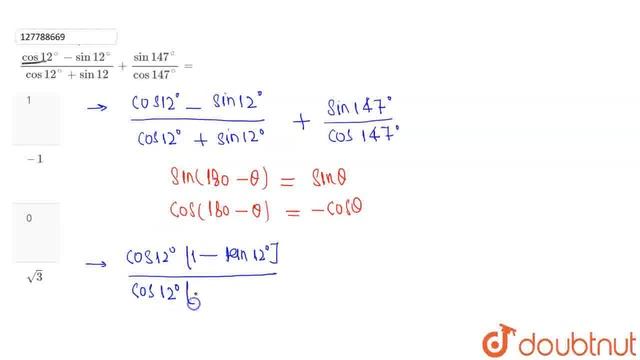 127788669
cos12° − sin12° / cos12° + sin12 + sin147° / cos147° =
1
−1
0
√3
→ cos12° − sin12° / cos12° + sin12° + sin147° / cos147°
sin(180−θ) = sinθ
cos(180−θ) = −cosθ
→ cos12° [1 − tan12°] / cos12° [
doubtnut